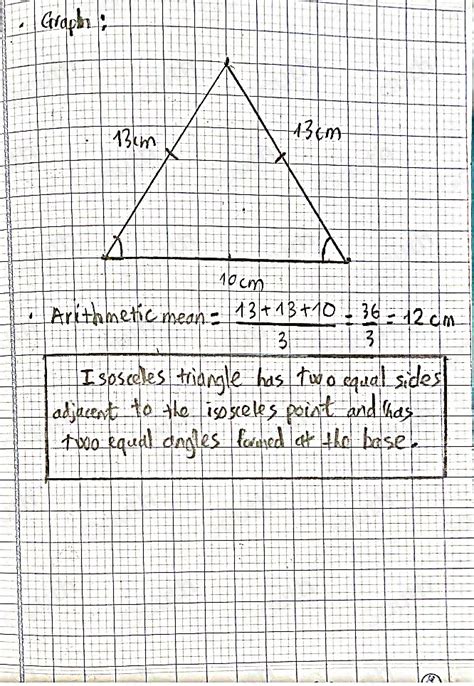 . Graph :
13cm
13cm
10cm
. Arithmetic mean = 13+13+10 / 3 = 36 / 3 = 12 cm
Isosceles triangle has two equal sides
adjacent to the isosceles point and has
two equal angles formed at the base.